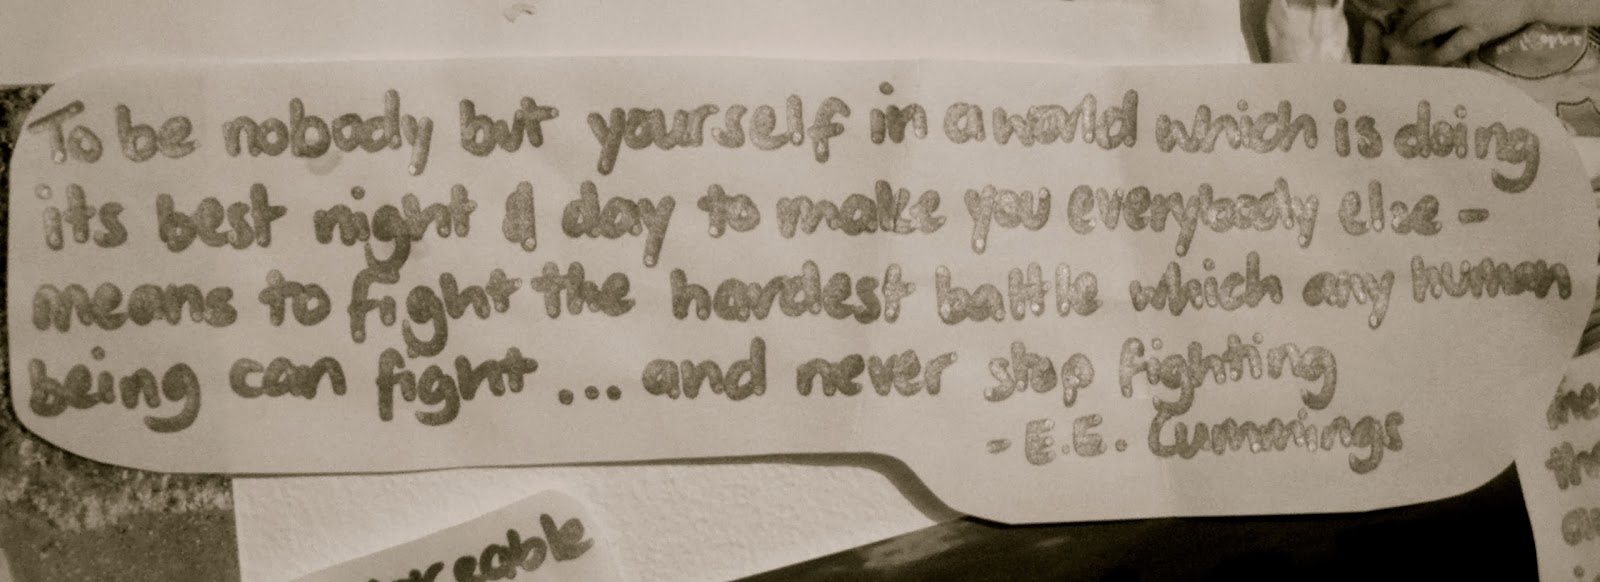 To be nobody but yourself in a world which is doing
its best night & day to make you everybody else -
means to fight the hardest battle which any human
being can fight ... and never stop fighting
- E.E. Cummings